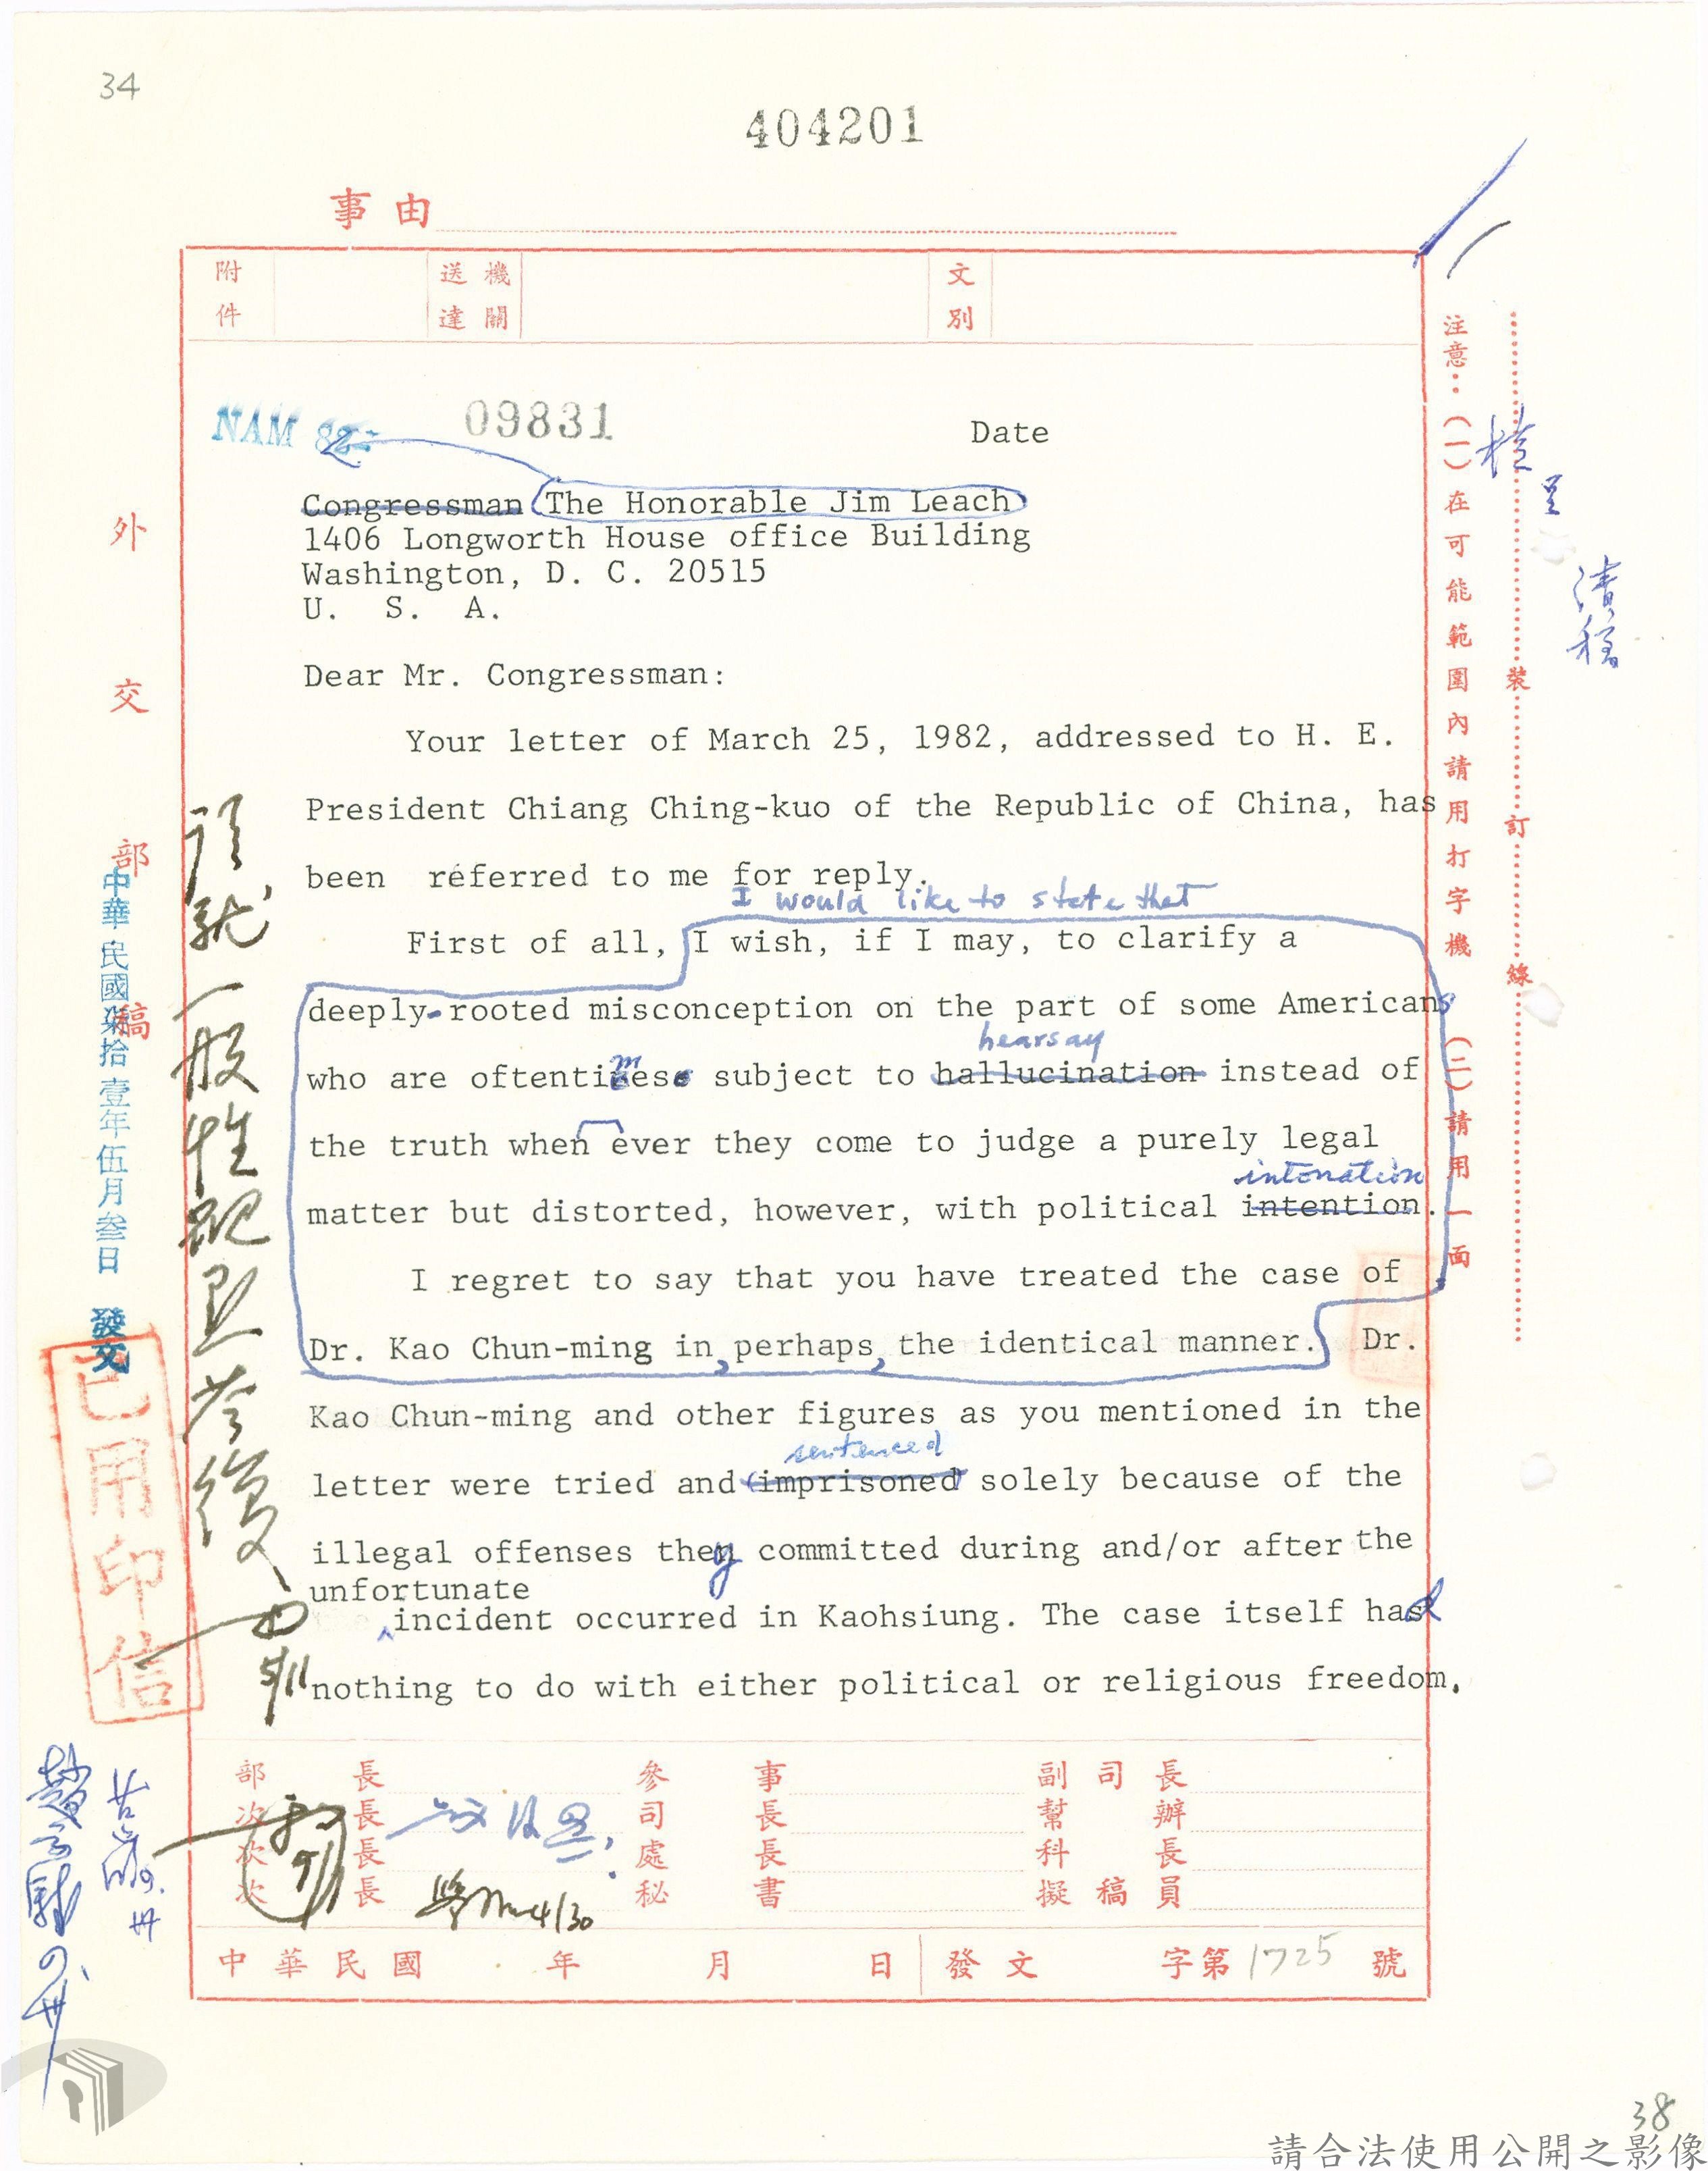 34
404201
事由
附件
送達機關
文別
NAM 82
09831
Date
Congressman The Honorable Jim Leach
1406 Longworth House office Building
Washington, D. C. 20515
U. S. A.
Dear Mr. Congressman:
Your letter of March 25, 1982, addressed to H. E.
President Chiang Ching-kuo of the Republic of China, has
been referred to me for reply.
I would like to state that
First of all, I wish, if I may, to clarify a
deeply-rooted misconception on the part of some Americans
hearsay
who are oftentimes subject to hallucination instead of
the truth when ever they come to judge a purely legal
intonation
matter but distorted, however, with political intention.
I regret to say that you have treated the case of
Dr. Kao Chun-ming in, perhaps, the identical manner. Dr.
Kao Chun-ming and other figures as you mentioned in the
sentenced
letter were tried and (imprisoned) solely because of the
illegal offenses they committed during and/or after the
unfortunate
incident occurred in Kaohsiung. The case itself had
nothing to do with either political or religious freedom.
外交部稿
中華民國柒拾壹年伍月叁日 發文
已用印信
請就一般性觀點答復
5/1
注意：（一）在可能範圍內請用打字機（二）請用一面
裝訂線
清稿
部長
次長
次長
次長
4/30
參事
司長
處長
秘書
副司長
幫辦
科長
擬稿員
中華民國 年 月 日
發文 字第1725號
38
請合法使用公開之影像